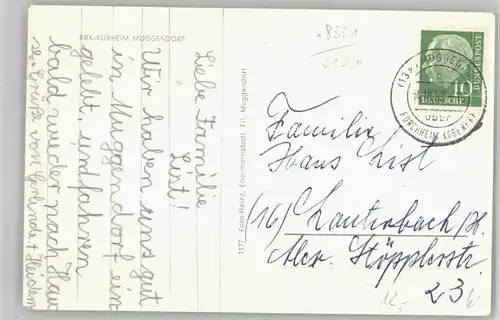 BRK-KURHEIM MUGGENDORF
Liebe Familie
List!
Wir haben uns gut
in Muggendorf ein
gelebt, und fahren
bald wieder nach Hau
se. Grüße von Gerlinde + Heidem
1177 Foto-Heinz, Ebermannstadt, Fil. Muggendorf
8551
DEUTSCHE
BUNDESPOST
10
(13a) MUGGEN
über
FORCHHEIM (OBERFR)
Familie
Hans List
(16) Lauterbach/H.
Alex. Stöpplerstr.
23
12,-